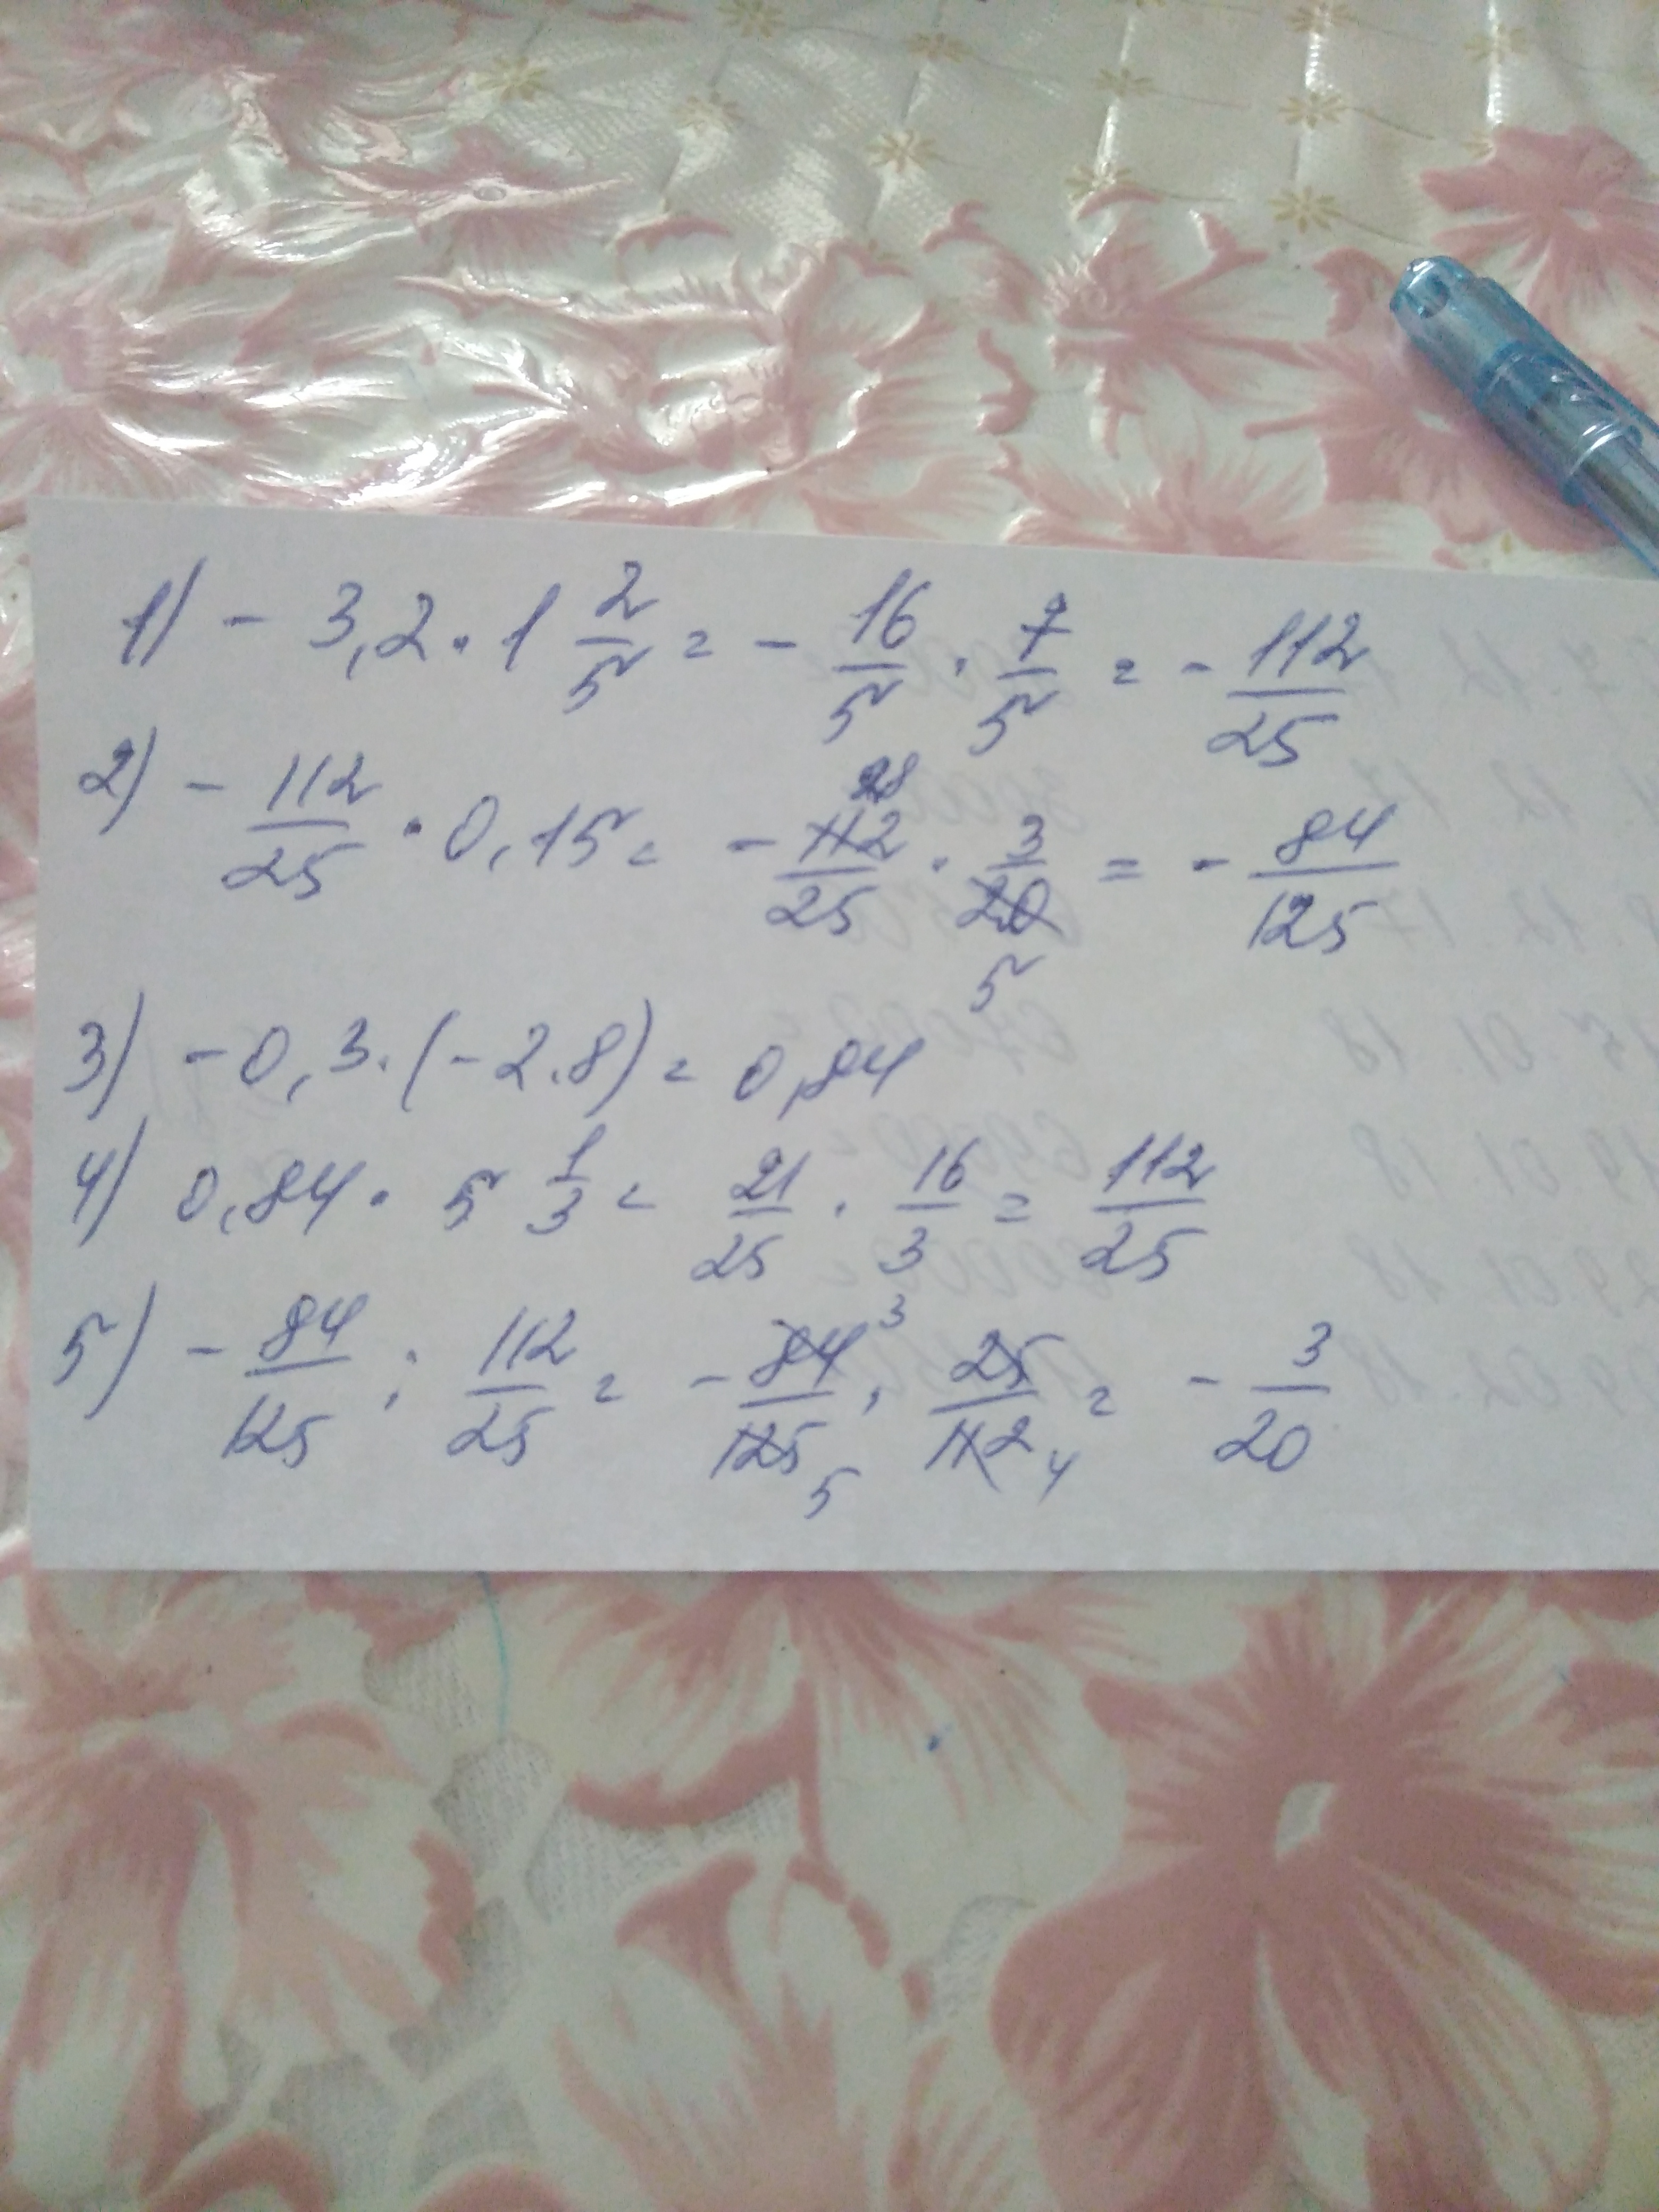 1) - 3,2 · 1 2/5 = - 16/5 · 7/5 = - 112/25
2) - 112/25 · 0,15 = - 112/25 28 · 3/20 5 = - 84/125
3) - 0,3 · (- 2.8) = 0,84
4) 0,84 · 5 1/3 = 21/25 · 16/3 = 112/25
5) - 84/125 : 112/25 = - 84/125 3 5 · 25/112 4 = - 3/20